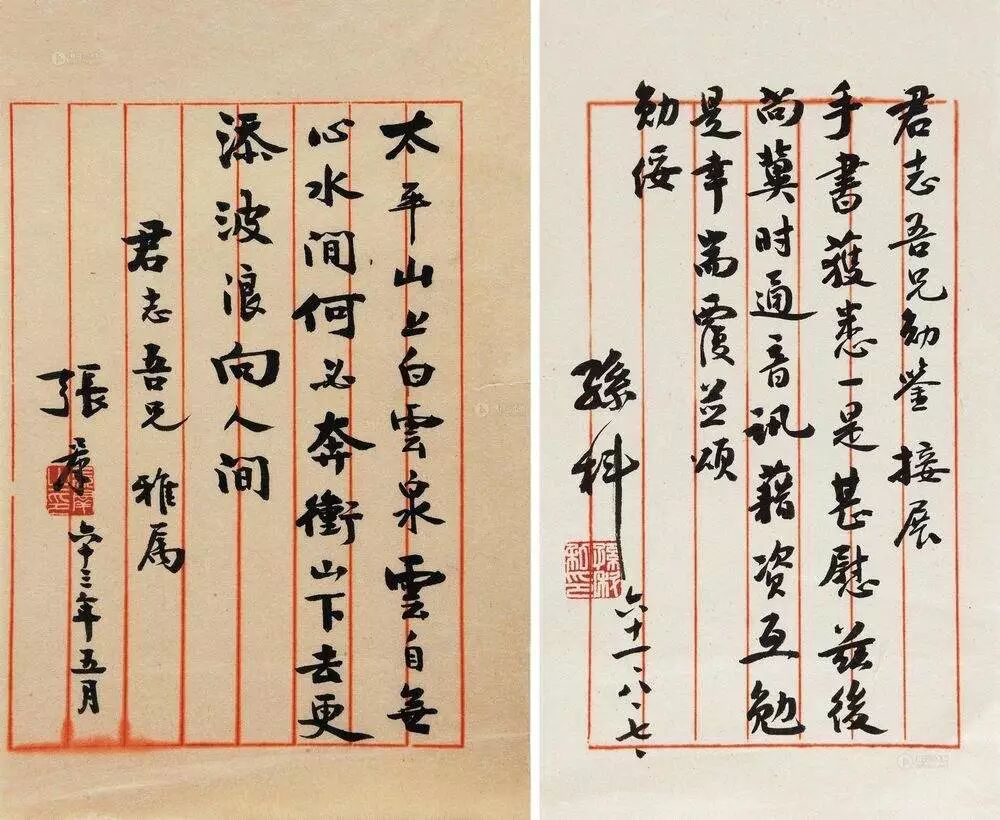 太平山上白雲泉雲自無
心水間何必奔衝山下去更
添波浪向人間
君志吾兄 雅属
張羣
六十三年五月
君志吾兄勛鑒 接展
手書獲悉一是甚慰茲後
尚冀时通音訊藉資互勉
是幸耑覆並頌
勛綏
孫科
六十一、八、七、